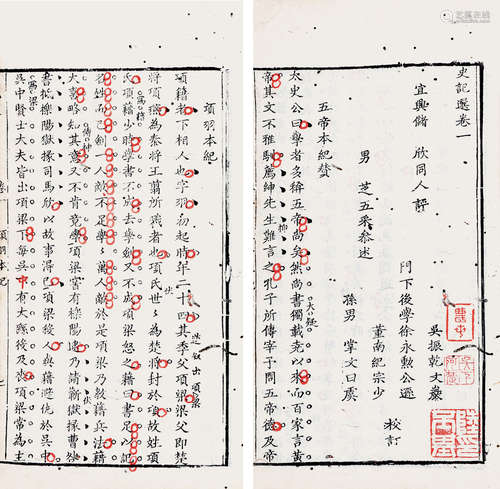 史記選卷一
宜興儲 欣同人評
男 芝五采叅述
吳振乾文巖
門下後學徐永勲公遜
董南紀宗少
校訂
孫男 掌文曰虞
五帝本紀贊
太史公曰學者多稱五帝尚矣然尚書獨載堯以來而百家言黃
帝其文不雅馴薦紳先生難言之孔子所傳宰予問五帝德及帝
項羽本紀
項籍者下相人也字羽初起時年二十四其季父項梁梁父即楚
將項燕為秦將王翦所戮者也項氏世世為楚將封於項故姓項
氏項籍少時學書不成去學劍又不成項梁怒之籍曰書足以記
名姓而已劍一人敵不足學學萬人敵於是項梁乃教籍兵法籍
大喜略知其意又不肯竟學項梁嘗有櫟陽逮乃請蘄獄掾曹咎
書抵櫟陽獄掾司馬欣以故事得已項梁殺人與籍避仇於吳中
吳中賢士大夫皆出項梁下每吳中有大繇役及喪項梁常為主